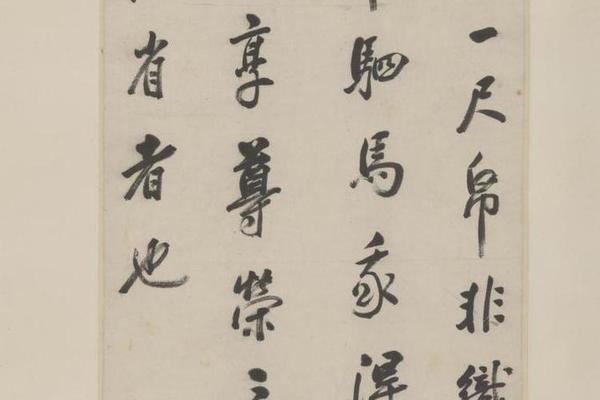 一尺帛非織
駟馬我得
享尊榮
省者也